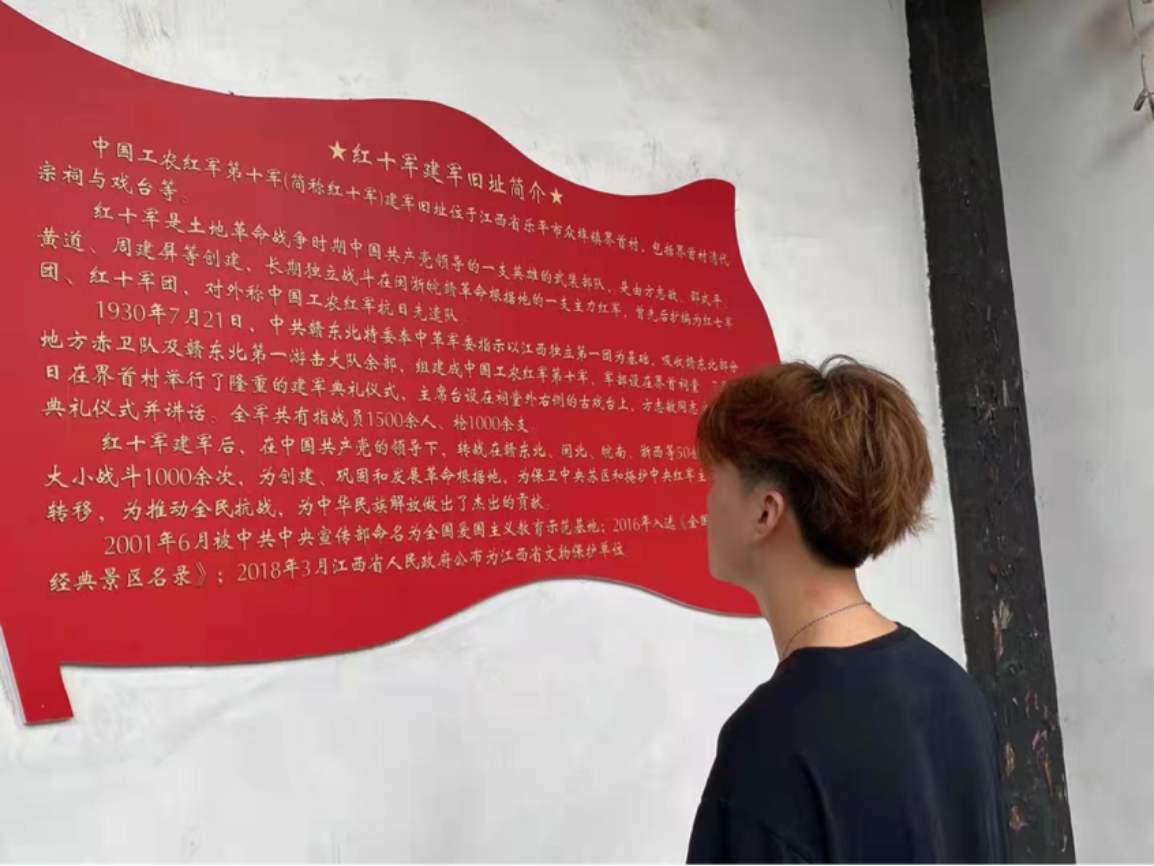 ★红十军建军旧址简介★
中国工农红军第十军(简称红十军)建军旧址位于江西省乐平市众埠镇界首村，包括界首村清代
宗祠与戏台等。
红十军是土地革命战争时期中国共产党领导的一支英雄的武装部队，是由方志敏、邵式平、
黄道、周建屏等创建，长期独立战斗在闽浙皖赣革命根据地的一支主力红军，曾先后扩编为红七军
团、红十军团，对外称中国工农红军抗日先遣队。
1930年7月21日，中共赣东北特委奉中革军委指示以江西独立第一团为基础，吸收赣东北部分
地方赤卫队及赣东北第一游击大队余部，组建成中国工农红军第十军，军部设在界首祠堂
日在界首村举行了隆重的建军典礼仪式，主席台设在祠堂外右侧的古戏台上，方志敏同志
典礼仪式并讲话。全军共有指战员1500余人、枪1000余支。
红十军建军后，在中国共产党的领导下，转战在赣东北、闽北、皖南、浙西等50
大小战斗1000余次，为创建、巩固和发展革命根据地，为保卫中央苏区和掩护中央红军主
转移，为推动全民抗战，为中华民族解放做出了杰出的贡献。
2001年6月被中共中央宣传部命名为全国爱国主义教育示范基地；2016年入选《全国
经典景区名录》；2018年3月江西省人民政府公布为江西省文物保护单位